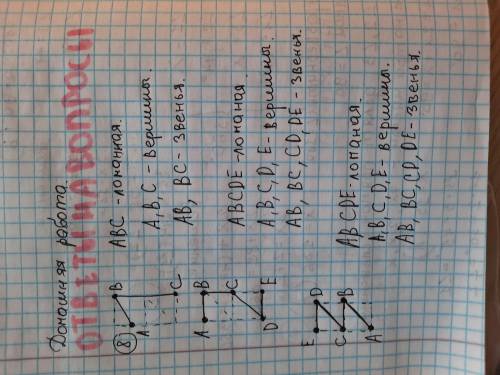 Домашняя работа.
ОТВЕТЫ НА ВОПРОСЫ
8
A
B
C
ABC - ломанная.
A, B, C - вершины.
AB, BC - звенья.
A
B
C
D
E
ABCDE - ломаная.
A, B, C, D, E - вершины.
AB, BC, CD, DE - звенья.
E
D
C
B
A
ABCDE - ломаная.
A, B, C, D, E - вершины.
AB, BC, CD, DE - звенья.